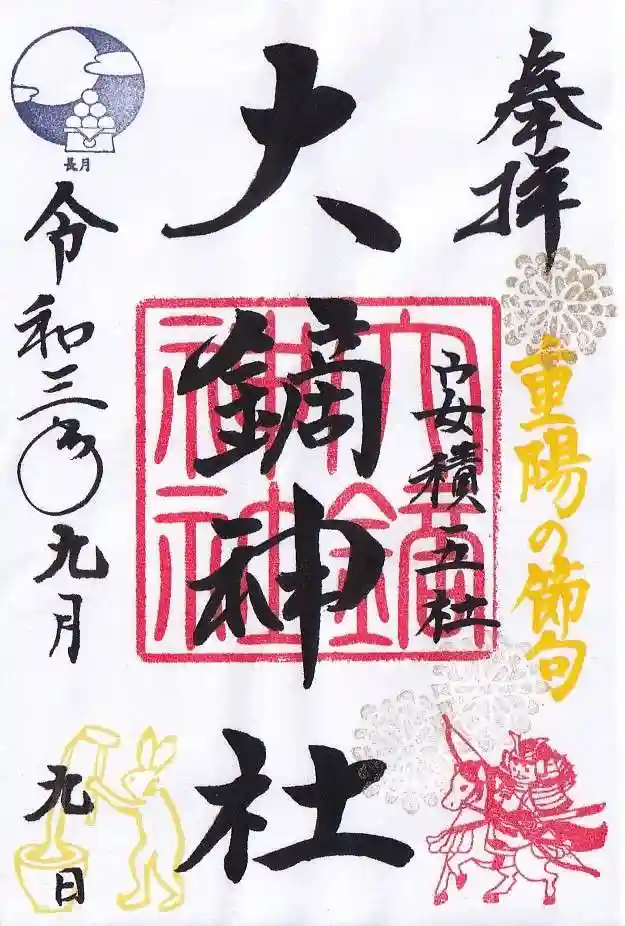 奉拝
重陽の節句
安積五社
大鏑神社
大鏑神社
長月
令和三年九月九日